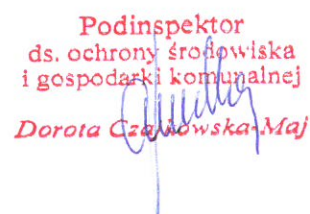 Podinspektor
ds. ochrony środowiska
i gospodarki komunalnej
Dorota Czajkowska-Maj